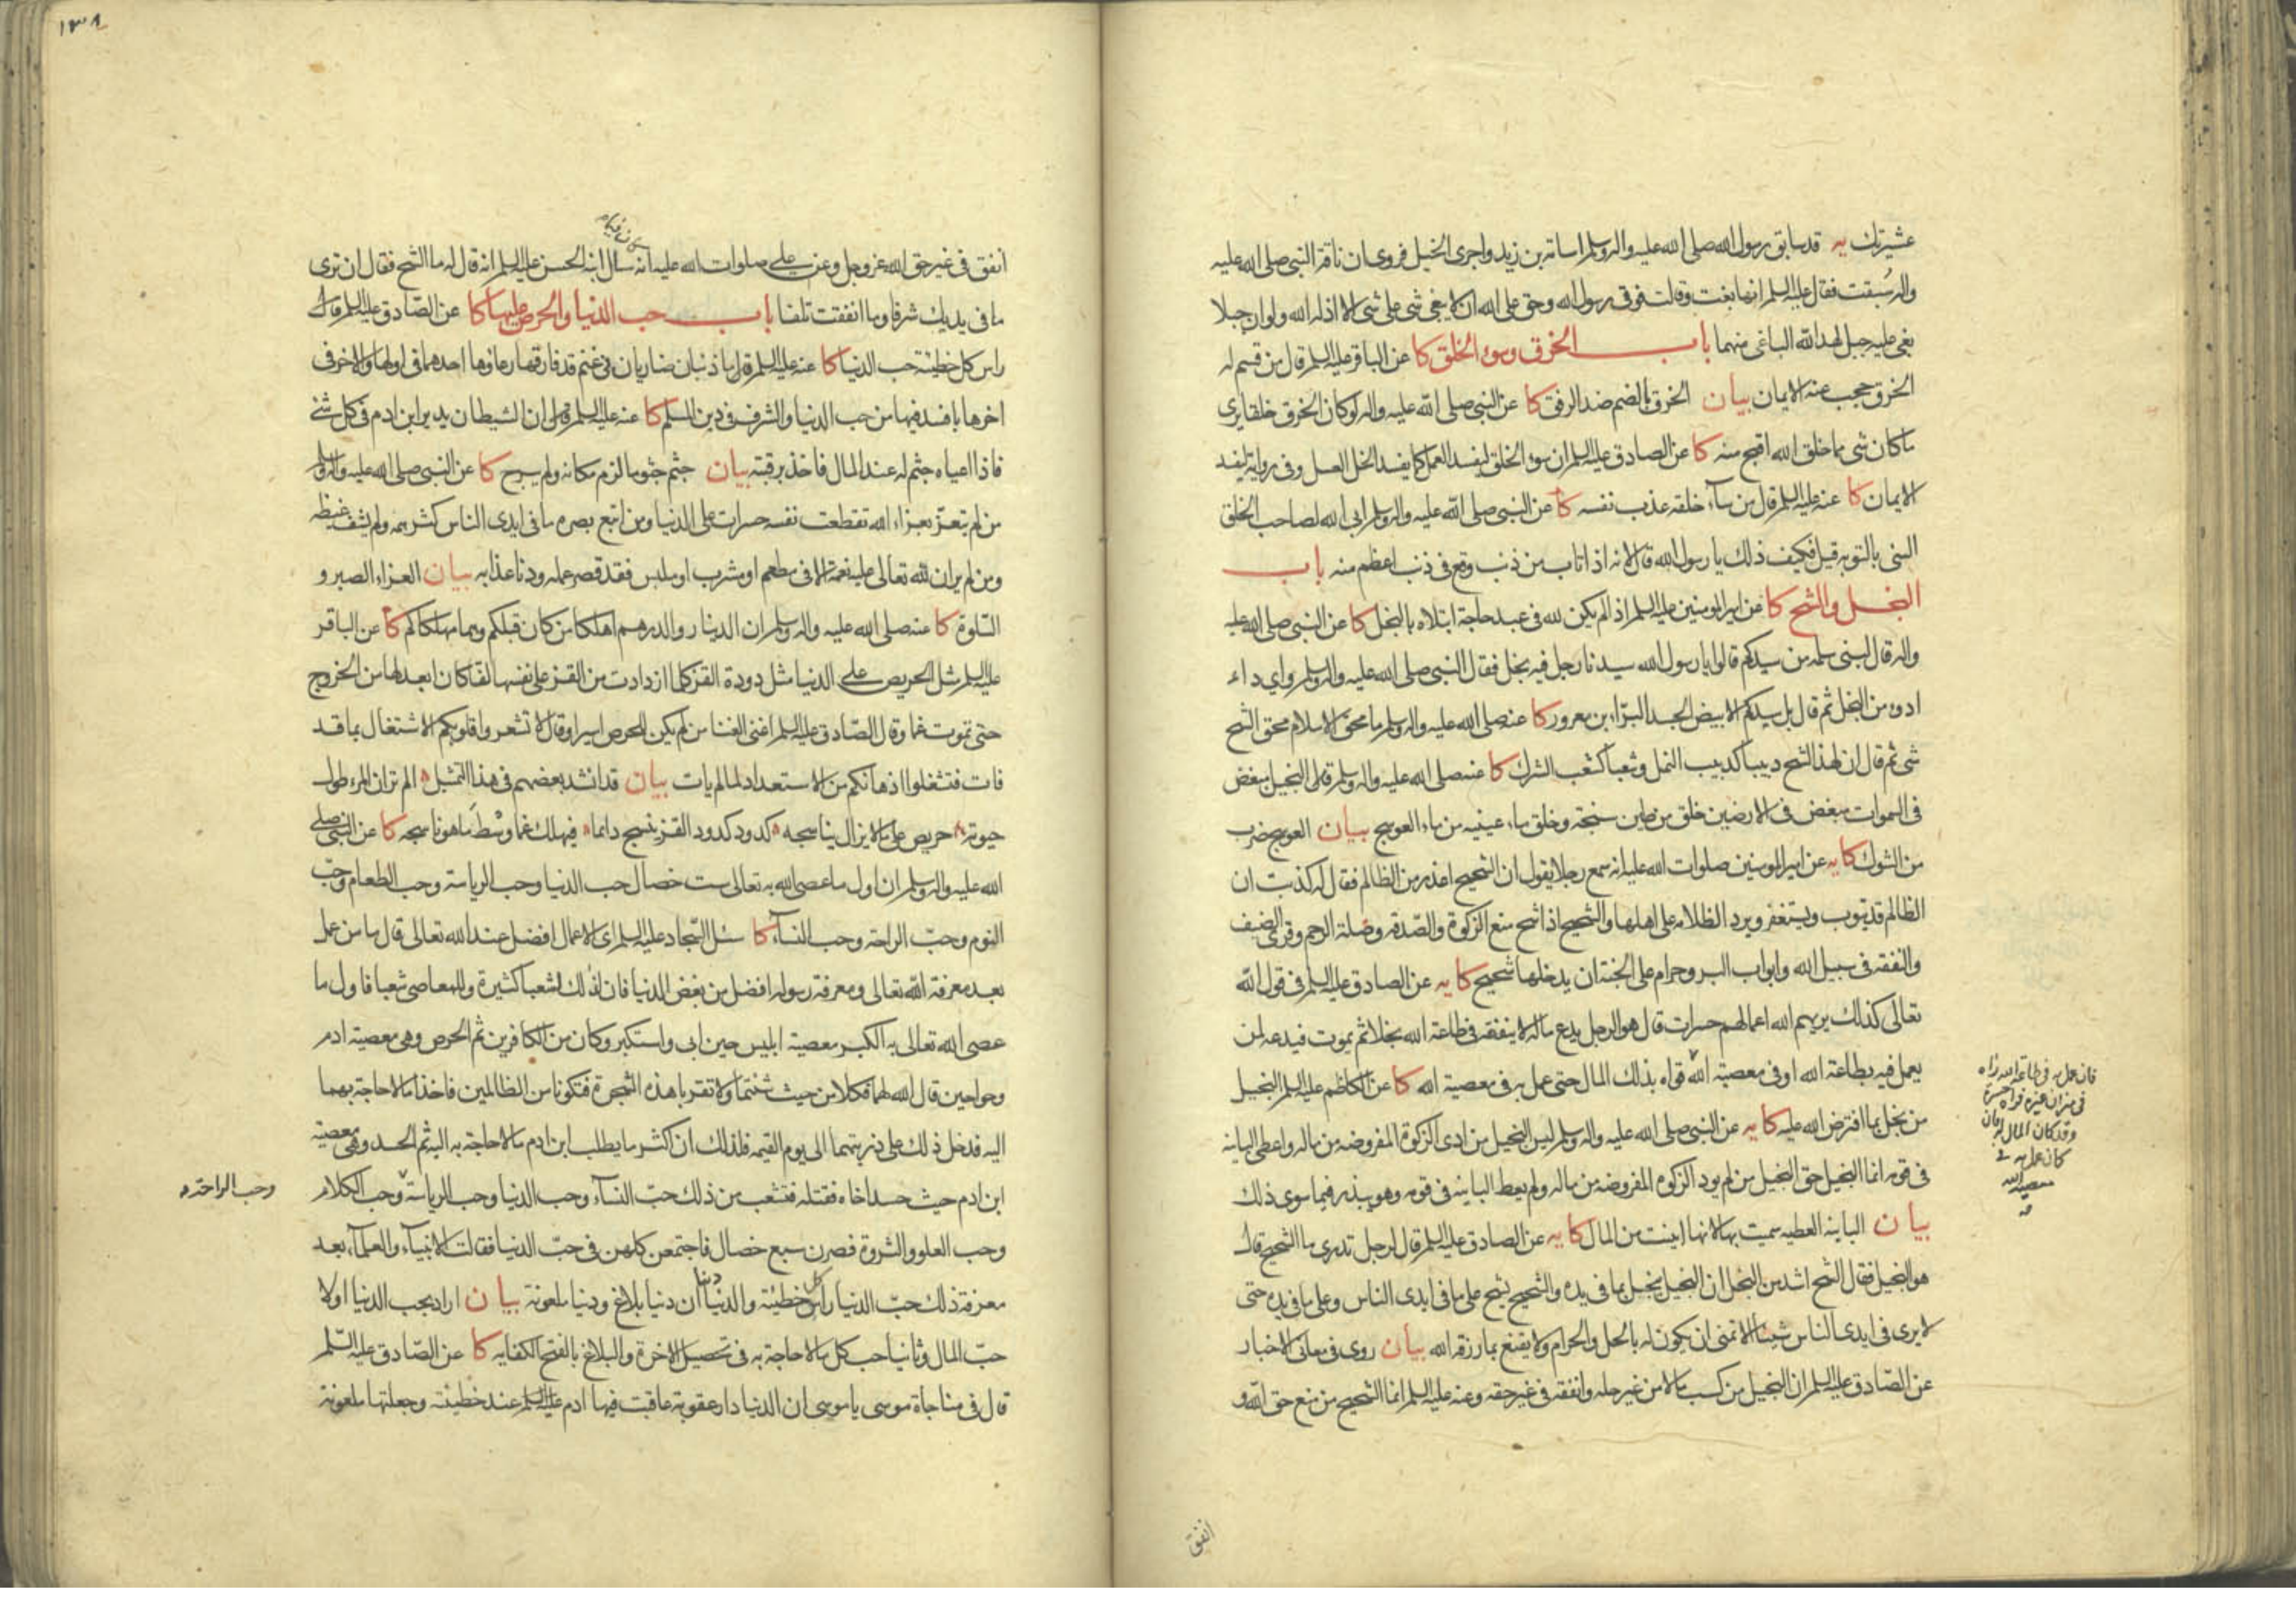 عشيرتك يه قد سابق رسول الله صلى الله عليه واله وسلم اسامة بن زيد واجرى الخيل فروى ان ناقة النبي صلى الله عليه
واله سُبقت فقال عليه السلم انها بغت وقالت فوقى رسول الله وحق على الله ان لا يبغى شئ على شئ الا اذله الله ولو ان جبلا
بغى عليه جبل لهد الله الباغى منهما باب الخرق وسوء الخلق كا عن الباقر عليه السلم قال من قسم له
الخرق حجب عنه الايمان بيان الخرق بالضم ضد الرفق كا عن النبي صلى الله عليه واله لو كان الخرق خلقا يرى
ما كان شئ مما خلق الله اقبح منه كا عن الصادق عليه السلم ان سوء الخلق ليفسد العمل كما يفسد الخل العسل وفى رواية ليفسد
الايمان كا عنه عليه السلم قال من ساء خلقه عذب نفسه كا عن النبي صلى الله عليه واله وسلم ابى الله لصاحب الخلق
السئ بالتوبه قيل فكيف ذلك يا رسول الله قال لانه اذا تاب من ذنب وقع فى ذنب اعظم منه باب
البخل والشح كا عن امير المومنين عليه السلم اذا لم يكن لله فى عبد حاجة ابتلاه بالبخل كا عن النبي صلى الله عليه
واله قال لبنى سلمه من سيدكم قالوا يا رسول الله سيدنا رجل فيه بخل فقال النبي صلى الله عليه واله وسلم واي داء
ادوى من البخل ثم قال بل سيدكم الابيض الجسد البراء بن معرور كا عنه صلى الله عليه واله وسلم ما محق الاسلام محق الشح
شئ ثم قال ان لهذا الشح دبيبا كدبيب النمل وشعبا كشعب الشرك كا عنه صلى الله عليه واله وسلم قال البخيل مبغض
فى السموات مبغض فى الارضين خلق من طين سبخة وخلق ماء عينيه من ماء العوسج بيان العوسج ضرب
من الشوك كا يه عن امير المومنين صلوات الله عليه انه سمع رجلا يقول ان الشحيح اعذر من الظالم فقال له كذبت ان
الظالم قد يتوب ويستغفر ويرد الظلامه على اهلها والشحيح اذا شح منع الزكوة والصدقه وصلة الرحم وقرى الضيف
والنفقه فى سبيل الله وابواب البر وحرام على الجنة ان يدخلها شحيح كا يه عن الصادق عليه السلم فى قول الله
تعالى كذلك يريهم الله اعمالهم حسرات قال هو الرجل يدع ماله لا ينفقه فى طاعة الله بخلا ثم يموت فيدعه لمن
يعمل فيه بطاعة الله او فى معصية الله قواه بذلك المال حتى عمل به فى معصية الله كا عن الكاظم عليه السلم البخيل
من بخل بما افترض الله عليه كا يه عن النبي صلى الله عليه واله وسلم ليس البخيل من ادى الزكوة المفروضه من ماله واعطى الباينه
فى قومه انما البخيل حق البخيل من لم يود الزكوه المفروضه من ماله ولم يعط الباينه فى قومه وهو يبذر فيما سوى ذلك
بيان الباينه العطيه سميت بها لانها ابينت من المال كا يه عن الصادق عليه السلم قال لرجل تدرى ما الشحيح قال
هو البخيل فقال الشح اشد من البخل ان البخيل يبخل بما فى يده والشحيح يشح على ما فى ايدى الناس وعلى ما فى يده حتى
لا يرى فى ايدى الناس شيئا الا تمنى ان يكون له بالحل والحرام ولا يقنع بما رزقه الله بيان روى فى معانى الاخبار
عن الصادق عليه السلم ان البخيل من كسب مالا من غير حله وانفقه فى غير حقه وعنه عليه السلم انما الشحيح من منع حق الله و
فان عمل به فى طاعة الله راه
فى ميزان غيره فراه حسرة
وقد كان المال له وان
كان عمل به فى
معصية الله
انفق
١٣٨
انفق فى غير حق الله عز وجل وعن على صلوات الله عليه انه سال ابنه الحسن عليه السلم انه قال له ما الشح فقال ان ترى
ما فى يديك شرفا وما انفقت تلفا باب حب الدنيا والحرص عليها كا عن الصادق عليه السلم قال
راس كل خطيئة حب الدنيا كا عنه عليه السلم قال ما ذئبان ضاريان فى غنم قد فارقها رعاوها احدهما فى اولها والاخر فى
اخرها بافسد فيها من حب الدنيا والشرف فى دين المسلم كا عنه عليه السلم قال ان الشيطان يدير ابن ادم فى كل شئ
فاذا اعياه جثم له عند المال فاخذ برقبته بيان جثم جثوما لزم مكانه ولم يبرح كا عن النبي صلى الله عليه واله وسلم
من لم يتعز بعزاء الله تقطعت نفسه حسرات على الدنيا ومن اتبع بصره ما فى ايدى الناس كثر همه ولم يشف غيظه
ومن لم ير ان لله تعالى عليه نعمة الا فى مطعم او مشرب او ملبس فقد قصر عمله ودنا عذابه بيان العزاء الصبر و
السلوة كا عنه صلى الله عليه واله وسلم ان الدينار والدرهم اهلكا من كان قبلكم وهما مهلكاكم كا عن الباقر
عليه السلم مثل الحريص على الدنيا مثل دودة القز كلما ازدادت من القز على نفسها لفا كان ابعد لها من الخروج
حتى تموت غما وقال الصادق عليه السلم اغنى الغنا من لم يكن للحرص اسيرا وقال لا تشعروا قلوبكم الاشتغال بما قد
فات فتشغلوا اذهانكم من الاستعداد لما لم يات بيان قد انشد بعضهم فى هذا التمثيل الم تر ان المرء طول
حيوته حريص على ما لا يزال يناسجه كدود كدود القز ينسج دائما فيهلك غما وسط ما هو ناسجه كا عن النبي صلى
الله عليه واله وسلم ان اول ما عصى الله به تعالى ست خصال حب الدنيا وحب الرياسة وحب الطعام وحب
النوم وحب الراحة وحب النساء كا سئل السجاد عليه السلم اى الاعمال افضل عند الله تعالى قال ما من عمل
بعد معرفة الله تعالى ومعرفة رسوله افضل من بغض الدنيا فان لذلك لشعبا كثيرة وللمعاصى شعبا فاول ما
عصى الله تعالى به الكبر معصية ابليس حين ابى واستكبر وكان من الكافرين ثم الحرص وهى معصية ادم
وحوا حين قال الله لهما فكلا من حيث شئتما ولا تقربا هذه الشجرة فتكونا من الظالمين فاخذا ما لا حاجة بهما
اليه فدخل ذلك على ذريتهما الى يوم القيمه فلذلك ان اكثر ما يطلب ابن ادم ما لا حاجة به اليه ثم الحسد وهى معصية
ابن ادم حيث حسد اخاه فقتله فتشعب من ذلك حب النساء وحب الدنيا وحب الرياسة وحب الكلام
وحب الراحة
وحب العلو والثروة فصرن سبع خصال فاجتمعن كلهن فى حب الدنيا فقالت الانبياء والعلماء بعد
معرفة ذلك حب الدنيا راس كل خطيئة والدنيا دنيا ان دنيا بلاغ ودنيا ملعونة بيان اراد بحب الدنيا اولا
حب المال وثانيا حب كل ما لا حاجة به فى تحصيل الاخرة والبلاغ بالفتح الكفايه كا عن الصادق عليه السلم
قال فى مناجاة موسى يا موسى ان الدنيا دار عقوبة عاقبت فيها ادم عليه السلم عند خطيئته وجعلتها ملعونة